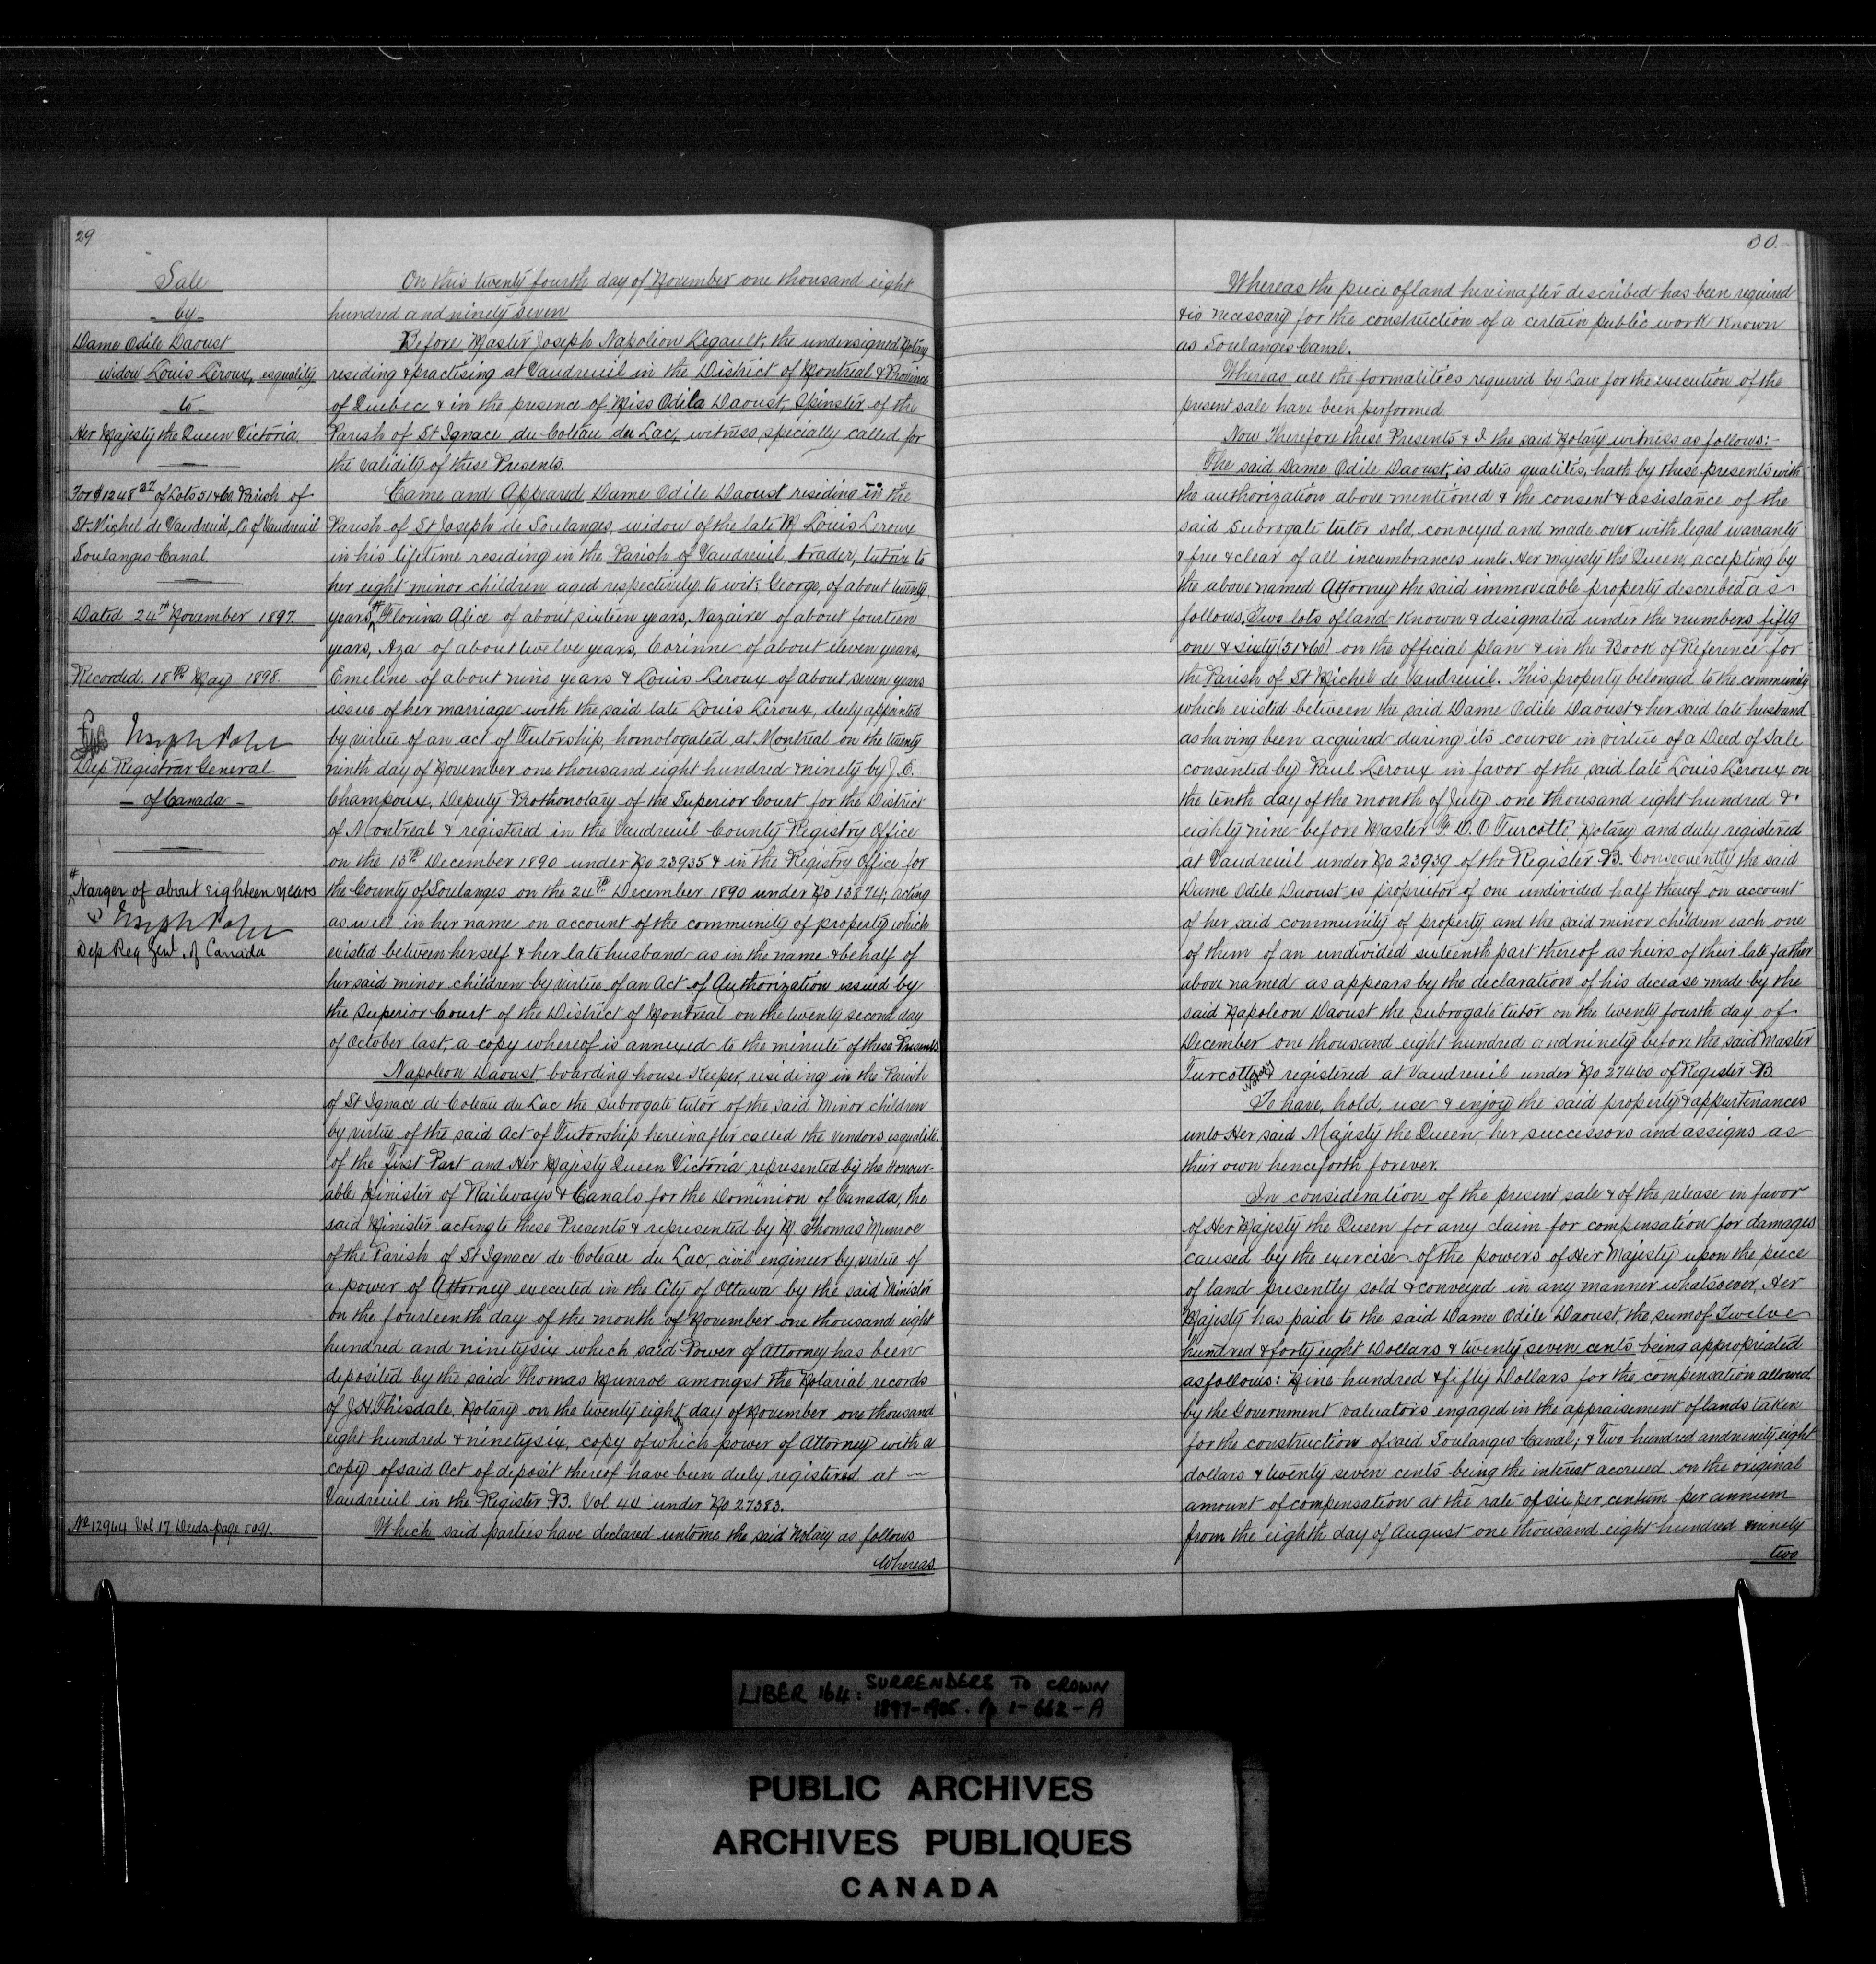 29
Sale
by
Dame Odile Daoust
widow Louis Leroux, esquality
to
Her Majesty the Queen Victoria.
For $1248 27 of Lots 51 & 60 Parish of
St Michel de Vaudreuil, Co of Vaudreuil
Soulanges Canal.
Dated 24th November 1897.
Recorded. 18th May 1898.
Joseph Pope
Dep Registrar General
of Canada
# Narger of about eighteen years
Joseph Pope
Dep Reg Genl of Canada
No 12964 Vol 17 Deeds page
On this twenty fourth day of November one thousand eight
hundred and ninety seven
Before Master Joseph Napoléon Legault, the undersigned Notary
residing & practising at Vaudreuil in the District of Montreal & Province
of Quebec & in the presence of Miss Odila Daoust, Spinster of the
Parish of St Ignace du Coteau du Lac, witness specially called for
the validity of these Presents.
Came and Appeared Dame Odile Daoust residing in the
Parish of St Joseph de Soulanges, widow of the late M Louis Leroux
in his lifetime residing in the Parish of Vaudreuil, trader, tutrix to
her eight minor children aged respectively, to wit; George, of about twenty
years, # Florina Alice of about sixteen years, Nazaire of about fourteen
years, Aza of about twelve years, Corinne of about eleven years,
Emeline of about nine years & Louis Leroux of about seven years
issue of her marriage with the said late Louis Leroux, duly appointed
by virtue of an act of Tutorship, homologated at Montreal on the twenty
ninth day of November one thousand eight hundred & ninety by J.
Champoux, Deputy Prothonotary of the Superior Court for the District
of Montreal & registered in the Vaudreuil County Registry Office
on the 13th December 1890 under No 23935 & in the Registry Office for
the County of Soulanges on the 24th December 1890 under No 13874; acting
as well in her name on account of the community of property which
existed between herself & her late husband as in the name & behalf of
her said minor children by virtue of an Act of Authorization issued by
the Superior Court of the District of Montreal on the twenty second day
of October last, a copy whereof is annexed to the minute of these Presents.
Napoleon Daoust, boarding house Keeper, residing in the Parish
of St Ignace de Coteau du Lac the subrogate tutor of the said Minor children
by virtue of the said Act of Tutorship hereinafter called the vendors esqualité
of the First Part and Her Majesty Queen Victoria represented by the Honour-
able Minister of Railways & Canals for the Dominion of Canada, the
said Minister acting to these Presents & represented by M. Thomas Munroe
of the Parish of St Ignace de Coteau du Lac, civil engineer by virtue of
a power of Attorney executed in the City of Ottawa by the said Minister
on the fourteenth day of the month of November one thousand eight
hundred and ninety six which said Power of Attorney has been
deposited by the said Thomas Munroe amongst the Notarial records
of J.H. Thisdale, Notary on the twenty eight day of November one thousand
eight hundred & ninety six, copy of which power of Attorney with a
copy of said Act of deposit thereof have been duly registered at
Vaudreuil in the Register B. Vol 44 under No 27383.
Which said parties have declared unto me the said Notary as follows
Whereas
30.
Whereas the piece of land hereinafter described has been required
& is necessary for the construction of a certain public work known
as Soulanges Canal.
Whereas all the formalities required by Law for the execution of the
present sale have been performed.
Now Therefore these Presents & I the said Notary witness as follows:-
The said Dame Odile Daoust, is dites qualités, hath by these presents with
the authorization above mentioned & the consent & assistance of the
said Subrogate tutor sold, conveyed and made over with legal warranty
& free & clear of all incumbrances unto Her majesty the Queen, accepting by
the above named Attorney the said immoveable property described as
follows. Two lots of land known & designated under the numbers fifty
one & sixty (51 & 60) on the official plan & in the Book of Reference for
the Parish of St Michel de Vaudreuil. This property belonged to the community
which existed between the said Dame Odile Daoust & her said late husband
as having been acquired during its course in virtue of a Deed of Sale
consented by Paul Leroux in favor of the said late Louis Leroux on
the tenth day of the month of July one thousand eight hundred &
eighty nine before Master F. D. O Turcotte Notary and duly registered
at Vaudreuil under No 23939 of the Register B. Consequently the said
Dame Odile Daoust is proprietor of one undivided half thereof on account
of her said community of property, and the said minor children each one
of them of an undivided sixteenth part thereof as heirs of their late father
above named as appears by the declaration of his decease made by the
said Napoleon Daoust the subrogate tutor on the twenty fourth day of
December one thousand eight hundred and ninety before the said Master
Turcotte Notary & registered at Vaudreuil under No 27460 of Register B.
To have, hold, use & enjoy the said property & appurtenances
unto Her said Majesty the Queen, her successors and assigns as
their own henceforth forever.
In consideration of the present sale & of the release in favor
of Her Majesty the Queen for any claim for compensation for damages
caused by the exercise of the powers of Her Majesty upon the piece
of land presently sold & conveyed in any manner whatsoever, Her
Majesty has paid to the said Dame Odile Daoust, the sum of Twelve
hundred & forty eight Dollars & twenty seven cents being appropriated
as follows: Nine hundred & fifty Dollars for the compensation allowed
by the Government valuators engaged in the appraisement of lands taken
for the construction of said Soulanges Canal; & Two hundred and ninety eight
dollars & twenty seven cents being the interest accrued on the original
amount of compensation at the rate of six per centum per annum
from the eighth day of August one thousand eight hundred & ninety
two
LIBER 164: SURRENDERS TO CROWN
1897-1905. Pp 1-662-A
PUBLIC ARCHIVES
ARCHIVES PUBLIQUES
CANADA